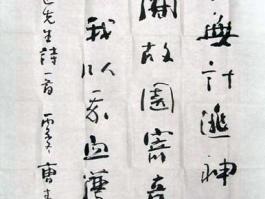 無計逃神
闇故園寄意
我以我血薦
先生詩一首